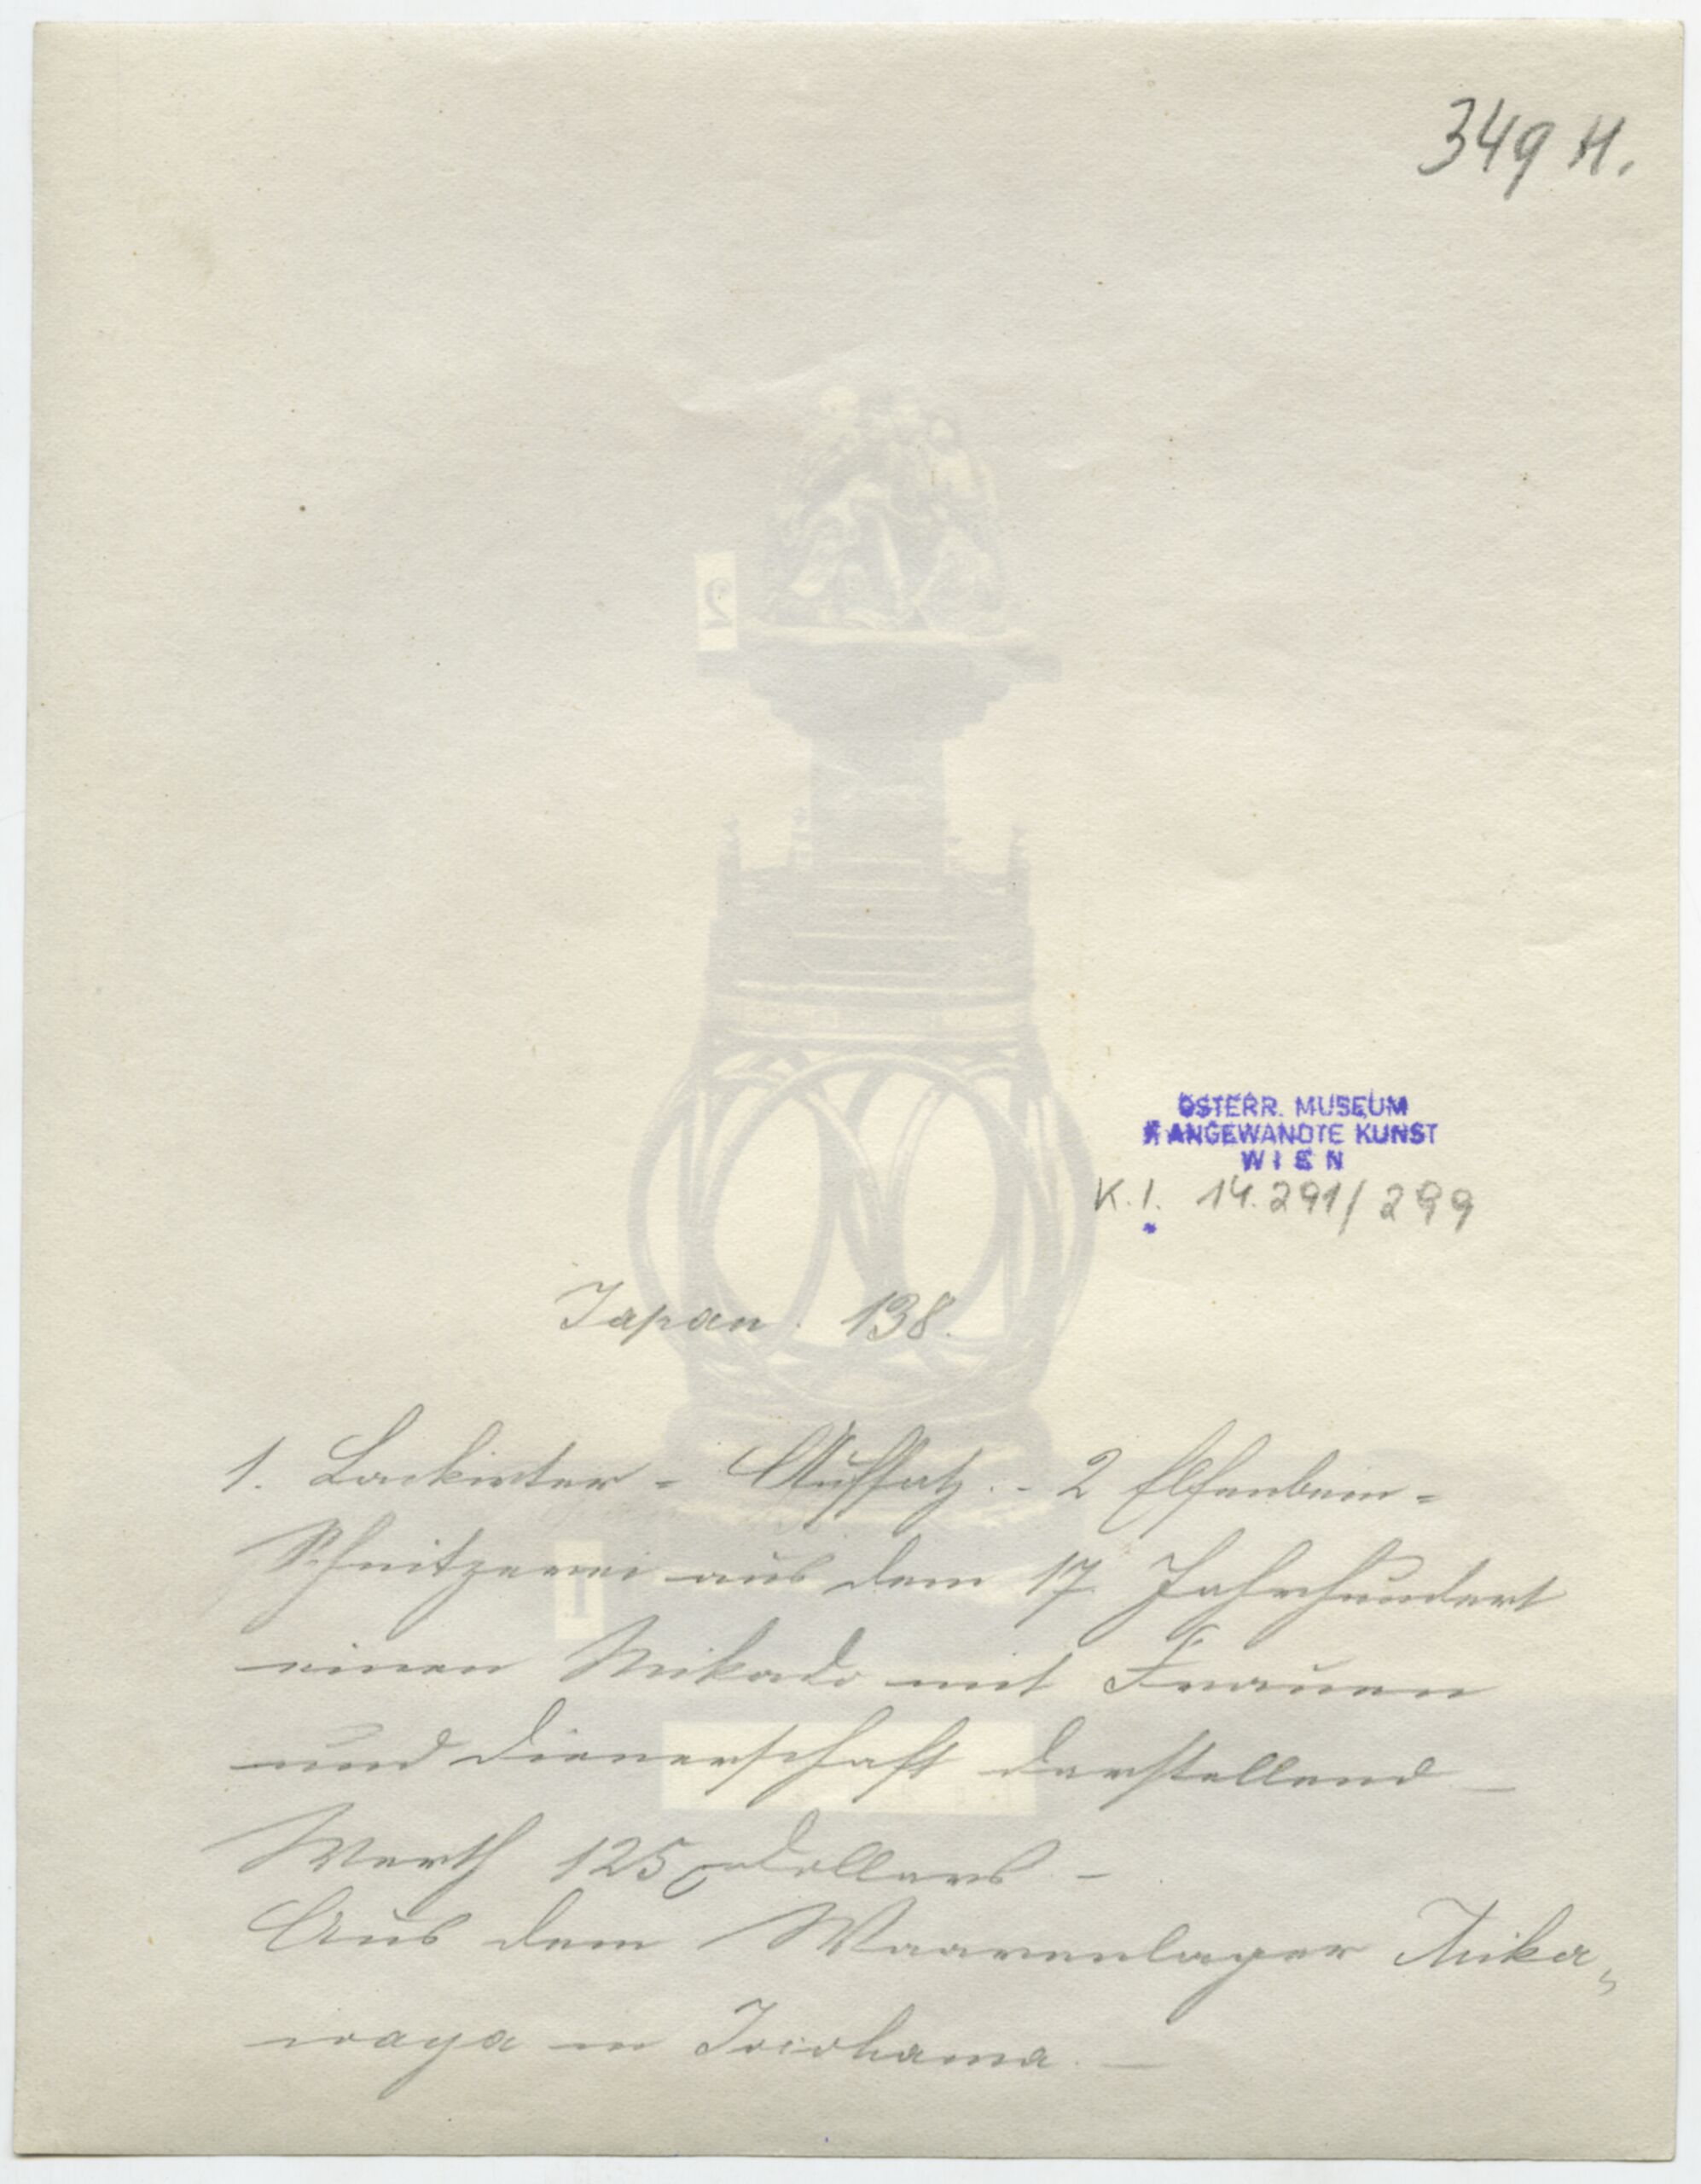 349 H.
ÖSTERR. MUSEUM
F ANGEWANDTE KUNST
WIEN
K.I. 14.291/299
Japan. 138.
1. Lackirter - Aufsatz. - 2 Elfenbein-
Schnitzerei aus dem 17 Jahrhundert
einen Mikado mit Frauen
und Dienerschaft darstellend -
Werth 125 Dollars. -
Aus dem Waarenlager Mika„
waya in Jocohama. -
2
1